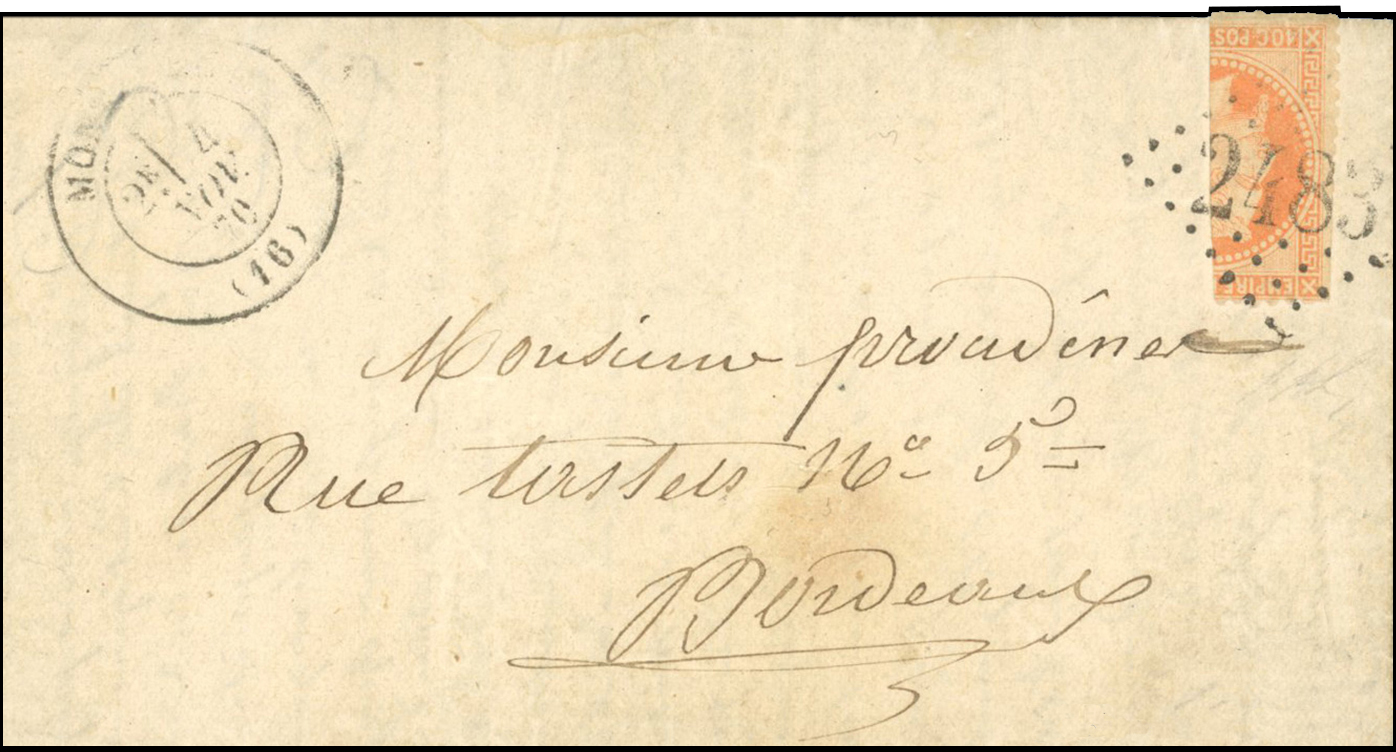 MON
2E/
4
NOV.
70
(16)
40 C. POS
EMPIRE
2483
Monsieur
Rue No 5
Bordeaux